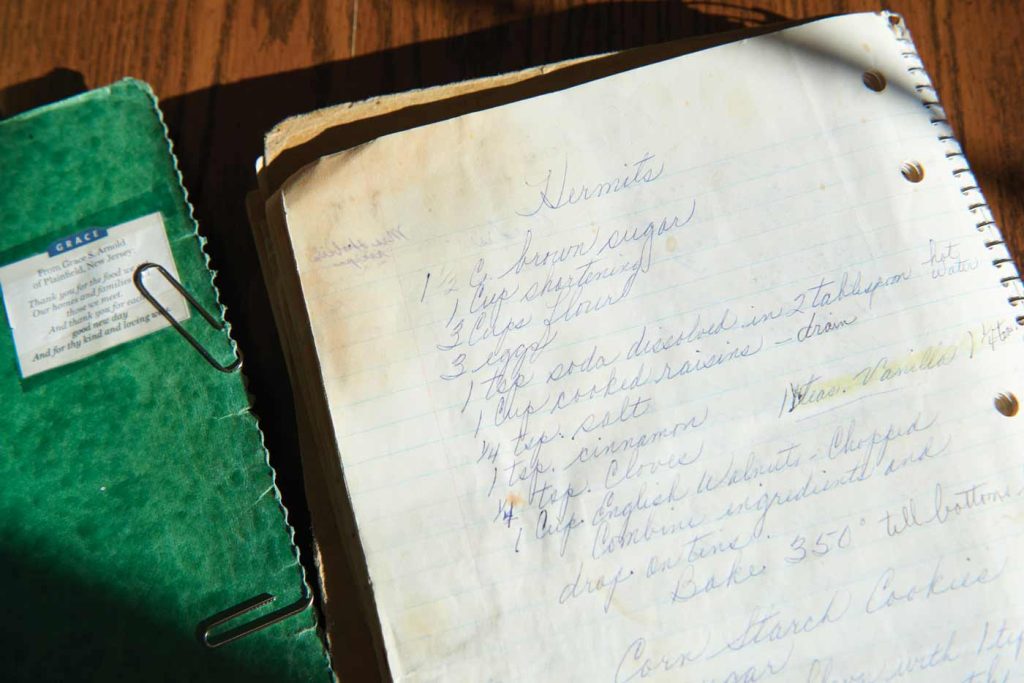 GRACE
From Grace S. Arnold
of Plainfield, New Jersey
Thank you for the food we
Our homes and families
those we meet.
And thank you for each
good new day
And for thy kind and loving
Hermits
1 1/2 C. brown sugar
1 Cup shortening
3 Cups flour
3 eggs
1 tsp soda dissolved in 2 tablespoon hot water
1 Cup cooked raisins - drain
1/4 tsp. salt
1 teas. Vanilla
1 tsp. cinnamon
1/4 tsp. Cloves
1 Cup English Walnuts - Chopped
Combine ingredients and
drop on tins.
Bake 350° till bottoms
Corn Starch Cookies
with 1 tsp